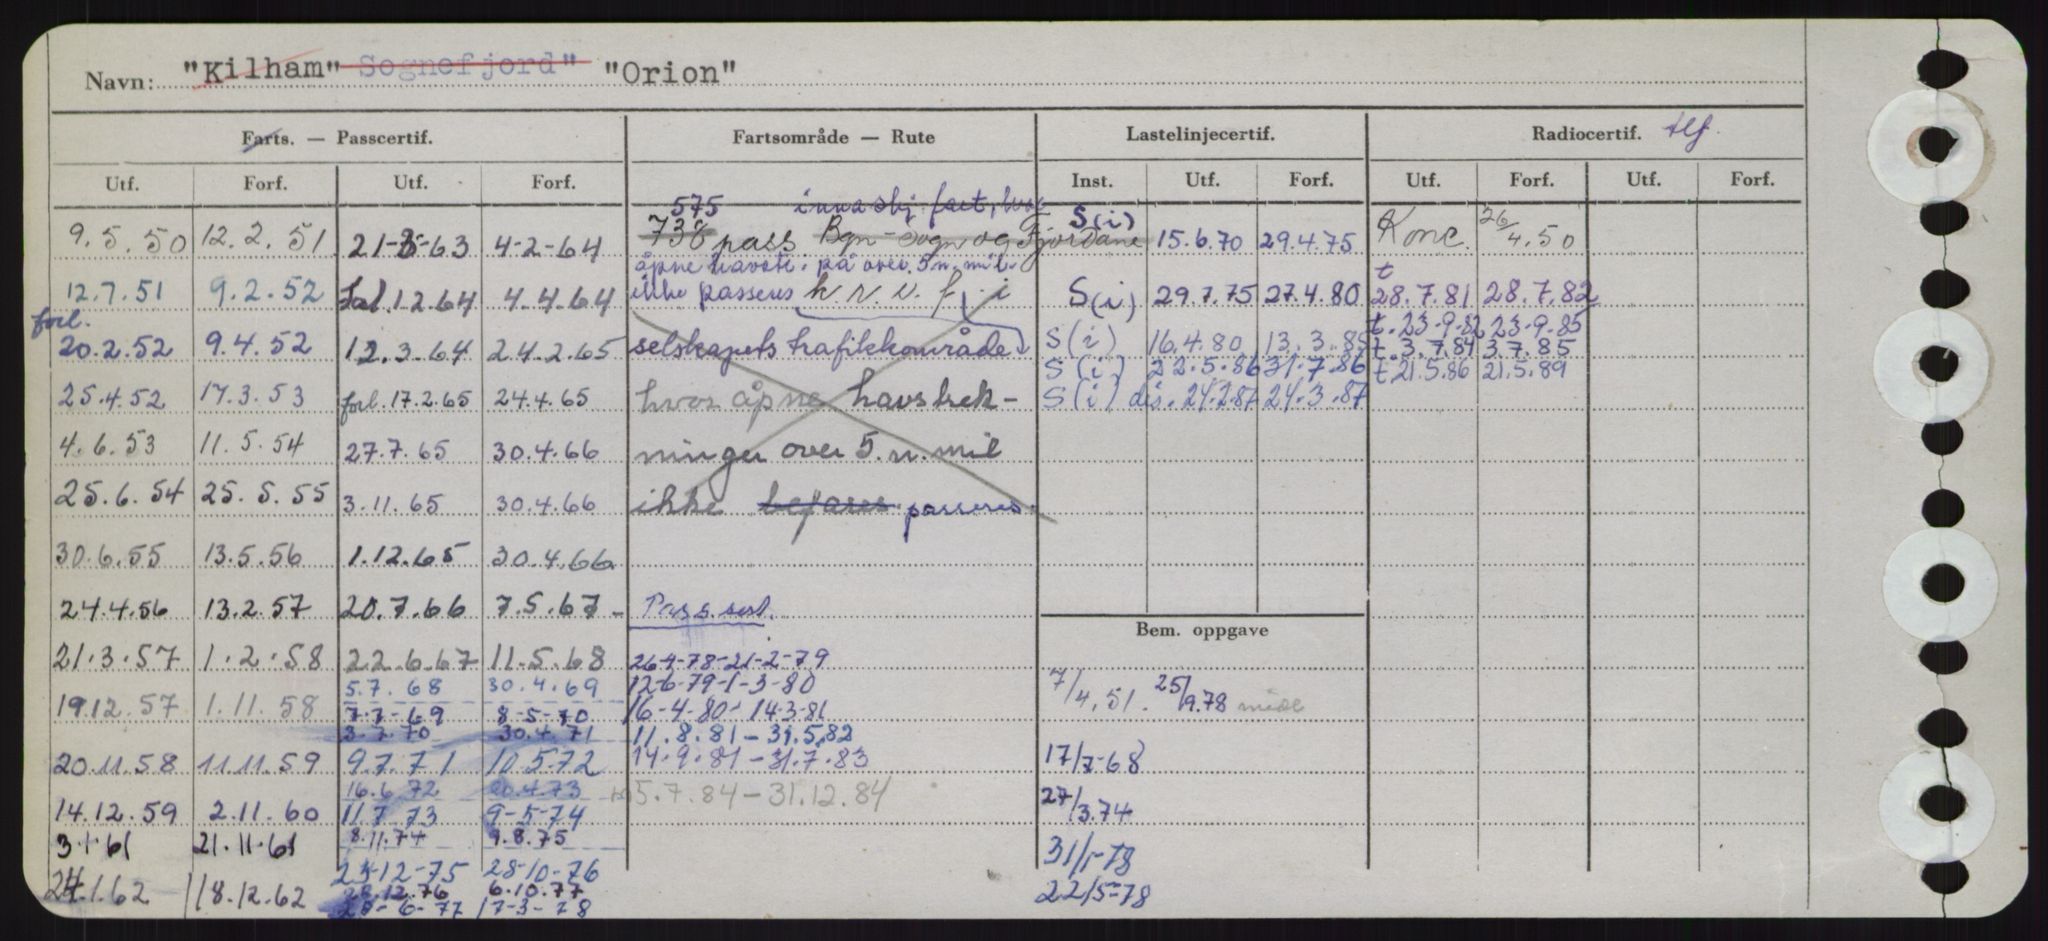 Navn: "Kilham" Sognefjord" "Orion"
Farts. — Passcertif. Fartsområde — Rute Lastelinjecertif. Radiocertif. tlf.
Utf. Forf. Utf. Forf. Inst. Utf. Forf. Utf. Forf. Utf. Forf.
575 innaskj. fart, hvor
9.5.50 12.2.51 21-8-63 4-2-64 738 pass. Bgn-Sogn og Fjordane S(i) 15.6.70 29.4.75 Konc. 26/4.50
åpne havstr. på over 5 n. mil
12.7.51 9.2.52 1.2.64 4.4.64 ikke passeres k.r.v.f. i S(i) 29.7.75 27.4.80 t 28.7.81 28.7.82
t. 23-9-82 23-9-85
forl. 20.2.52 9.4.52 12.3.64 24.2.65 selskapets trafikkområde S(i) 16.4.80 13.3.85 t. 3.7.84 3.7.85
S(i) 22.5.86 31.7.86 t 21.5.86 21.5.89
25.4.52 17.3.53 forl. 17.2.65 24.4.65 hvor åpne havstrek- S(i) dis. 24.2.87 24.3.87
4.6.53 11.5.54 27.7.65 30.4.66 ninger over 5 n. mil
25.6.54 25.5.55 3.11.65 30.4.66 ikke befares passeres.
30.6.55 13.5.56 1.12.65 30.4.66
24.4.56 13.2.57 20.7.66 7.5.67- Pass.sert.
Bem. oppgave
21.3.57 1.2.58 22.6.67 11.5.68 26-4-78-21-2-79
5.7.68 30.4.69 12-6-79-1-3-80 7/4.51. 25/9.78 midl
19.12.57 1.11.58 7-7-69 8-5-70 16-4-80- 14-3-81
3.7.70 30.4.71 11.8.81-31.5.82
20.11.58 11.11.59 9.7.71 10.5.72 14.9.81-31.7.83 17/7-68
16.6.72 20.4.73 5.7.84-31.12.84
14.12.59 2.11.60 11.7.73 9-5-74 27/3.74
3-1-61 21.11.61 8.11.74 9.8.75
23-12-75 28-10-76 31/1-78
24.1.62 18.12.62 28.12.76 6.10.77 22/5-78
28-6-77 17-3-78